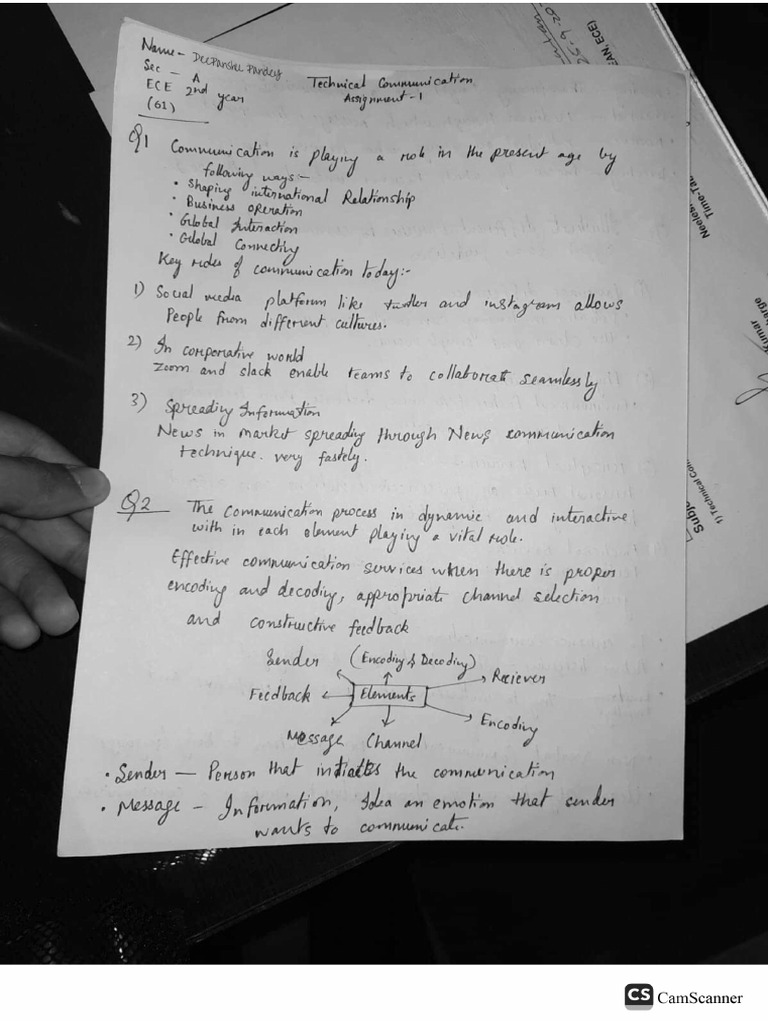 Name - Deepanshu Pandey
Sec - A
ECE 2nd year
(61)
Technical Communication
Assignment - 1
Q1 Communication is playing a role in the present age by
following ways:-
• Shaping international Relationship
• Business operation
• Global Interaction
• Global Connecting
Key roles of communication today:-
1) Social media platform like twitter and instagram allows
People from different cultures.
2) In corporative world
Zoom and slack enable teams to collaborate seamlessly
3) Spreading Information
News in market spreading through News communication
technique. very fastely.
Q2 The communication process in dynamic and interactive
with in each element playing a vital role.
Effective communication services when there is proper
encoding and decoding, appropriate channel selection
and constructive feedback
Sender (Encoding & Decoding) Reciever
Feedback Elements
Message Channel Encoding
• Sender — Person that initiates the communication
• Message - Information, Idea an emotion that sender
wants to communicate.
25.9.20
EAN, ECE)
Time-Tab
Kumar
Subje
1) Technical Com
CS CamScanner